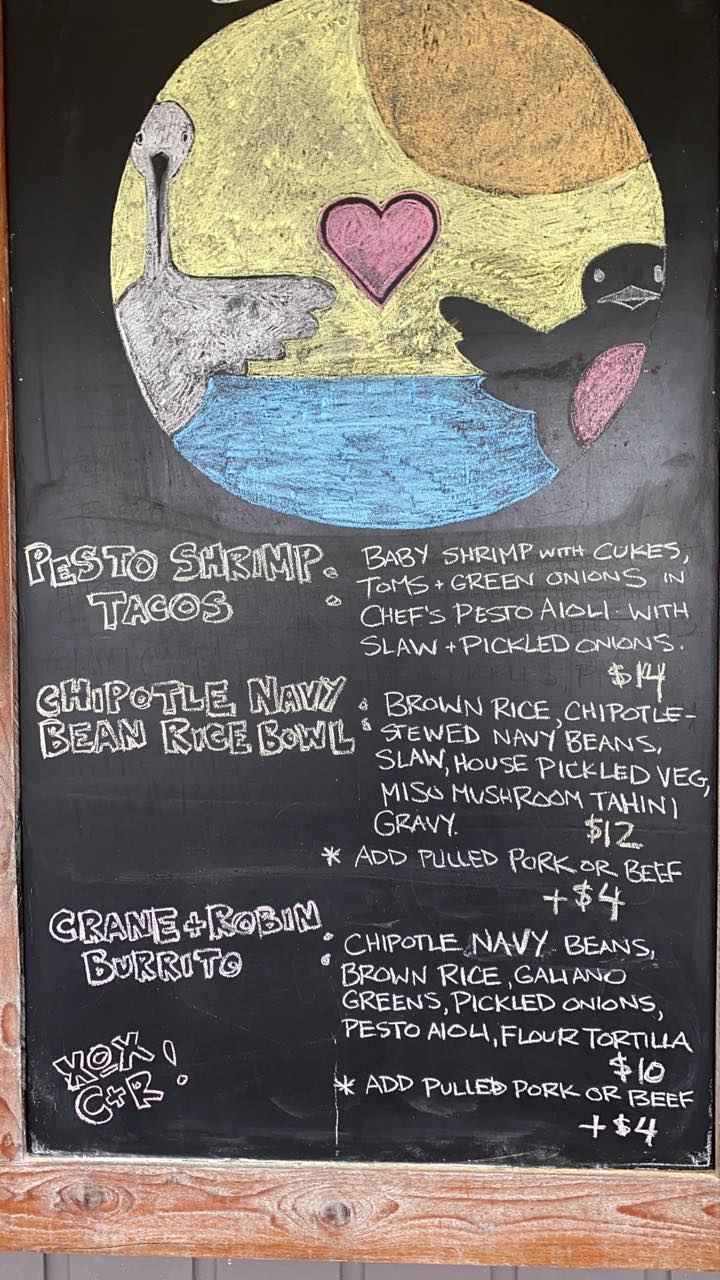 PESTO SHRIMP :
TACOS
BABY SHRIMP WITH CUKES,
TOMS + GREEN ONIONS IN
CHEF'S PESTO AIOLI WITH
SLAW + PICKLED ONIONS.
$14
CHIPOTLE NAVY :
BEAN RICE BOWL
BROWN RICE, CHIPOTLE-
STEWED NAVY BEANS,
SLAW, HOUSE PICKLED VEG,
MISO MUSHROOM TAHINI
GRAVY.
$12
* ADD PULLED PORK OR BEEF
+$4
CRANE + ROBIN :
BURRITO
CHIPOTLE NAVY BEANS,
BROWN RICE, GALIANO
GREENS, PICKLED ONIONS,
PESTO AIOLI, FLOUR TORTILLA
$10
* ADD PULLED PORK OR BEEF
+$4
XOX
C+R!